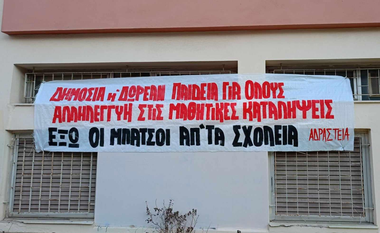 ΔΗΜΟΣΙΑ κ' ΔΩΡΕΑΝ ΠΑΙΔΕΙΑ ΓΙΑ ΟΛΟΥΣ
ΑΛΛΗΛΕΓΓΥΗ ΣΤΙΣ ΜΑΘΗΤΙΚΕΣ ΚΑΤΑΛΗΨΕΙΣ
ΕΞΩ ΟΙ ΜΠΑΤΣΟΙ ΑΠ' ΤΑ ΣΧΟΛΕΙΑ ΑΔΡΑΣΤΕΙΑ